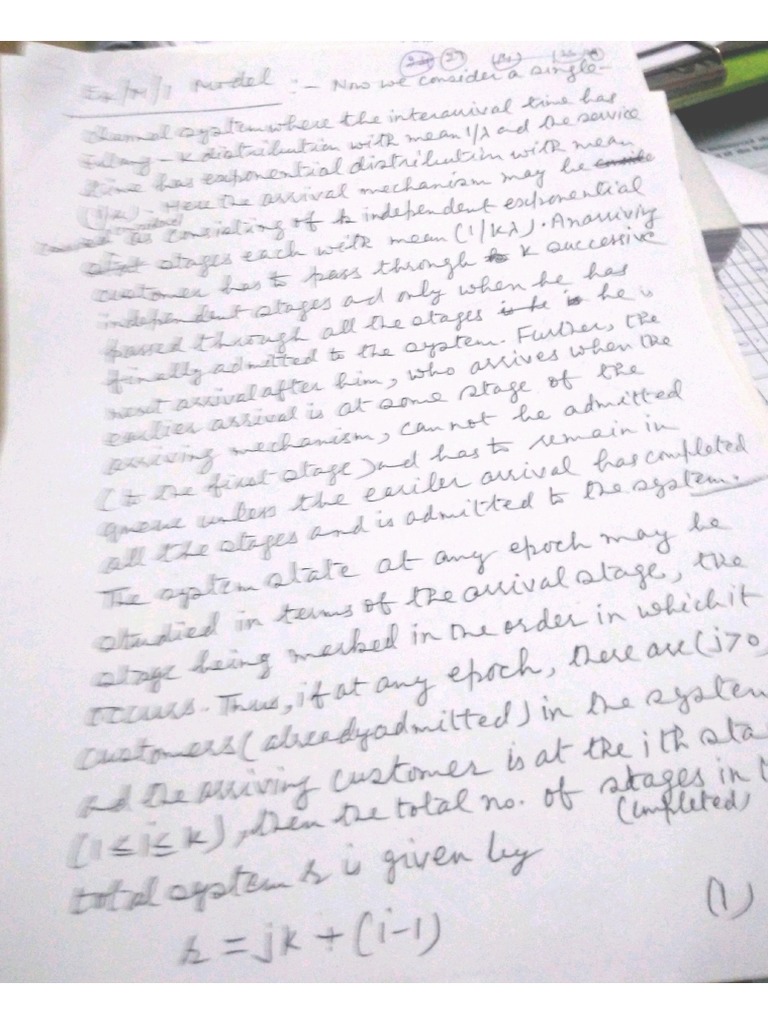 Ek/M/1 Model :- Now we consider a single-
channel system where the interarrival time has
Erlang-k distribution with mean 1/λ and the service
time has exponential distribution with mean
(1/μ). Here the arrival mechanism may be
considered as consisting of k independent exponential
stages each with mean (1/kλ). An arriving
customer has to pass through k successive
independent stages and only when he has
passed through all the stages he is
finally admitted to the system. Further, the
next arrival after him, who arrives when the
earlier arrival is at some stage of the
arriving mechanism, can not be admitted
(to the first stage) and has to remain in
queue unless the earlier arrival has completed
all the stages and is admitted to the system.
The system state at any epoch may be
studied in terms of the arrival stage, the
stage being marked in the order in which it
occurs. Thus, if at any epoch, there are (j>0)
customers (already admitted) in the system
and the arriving customer is at the ith sta
(1≤i≤k), then the total no. of stages in
(completed)
total system is given by
= jk + (i-1) (1)